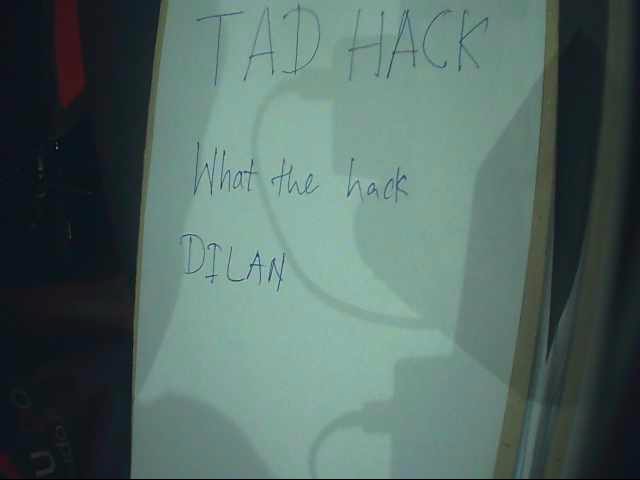 TAD HACK
What the hack
DILAN